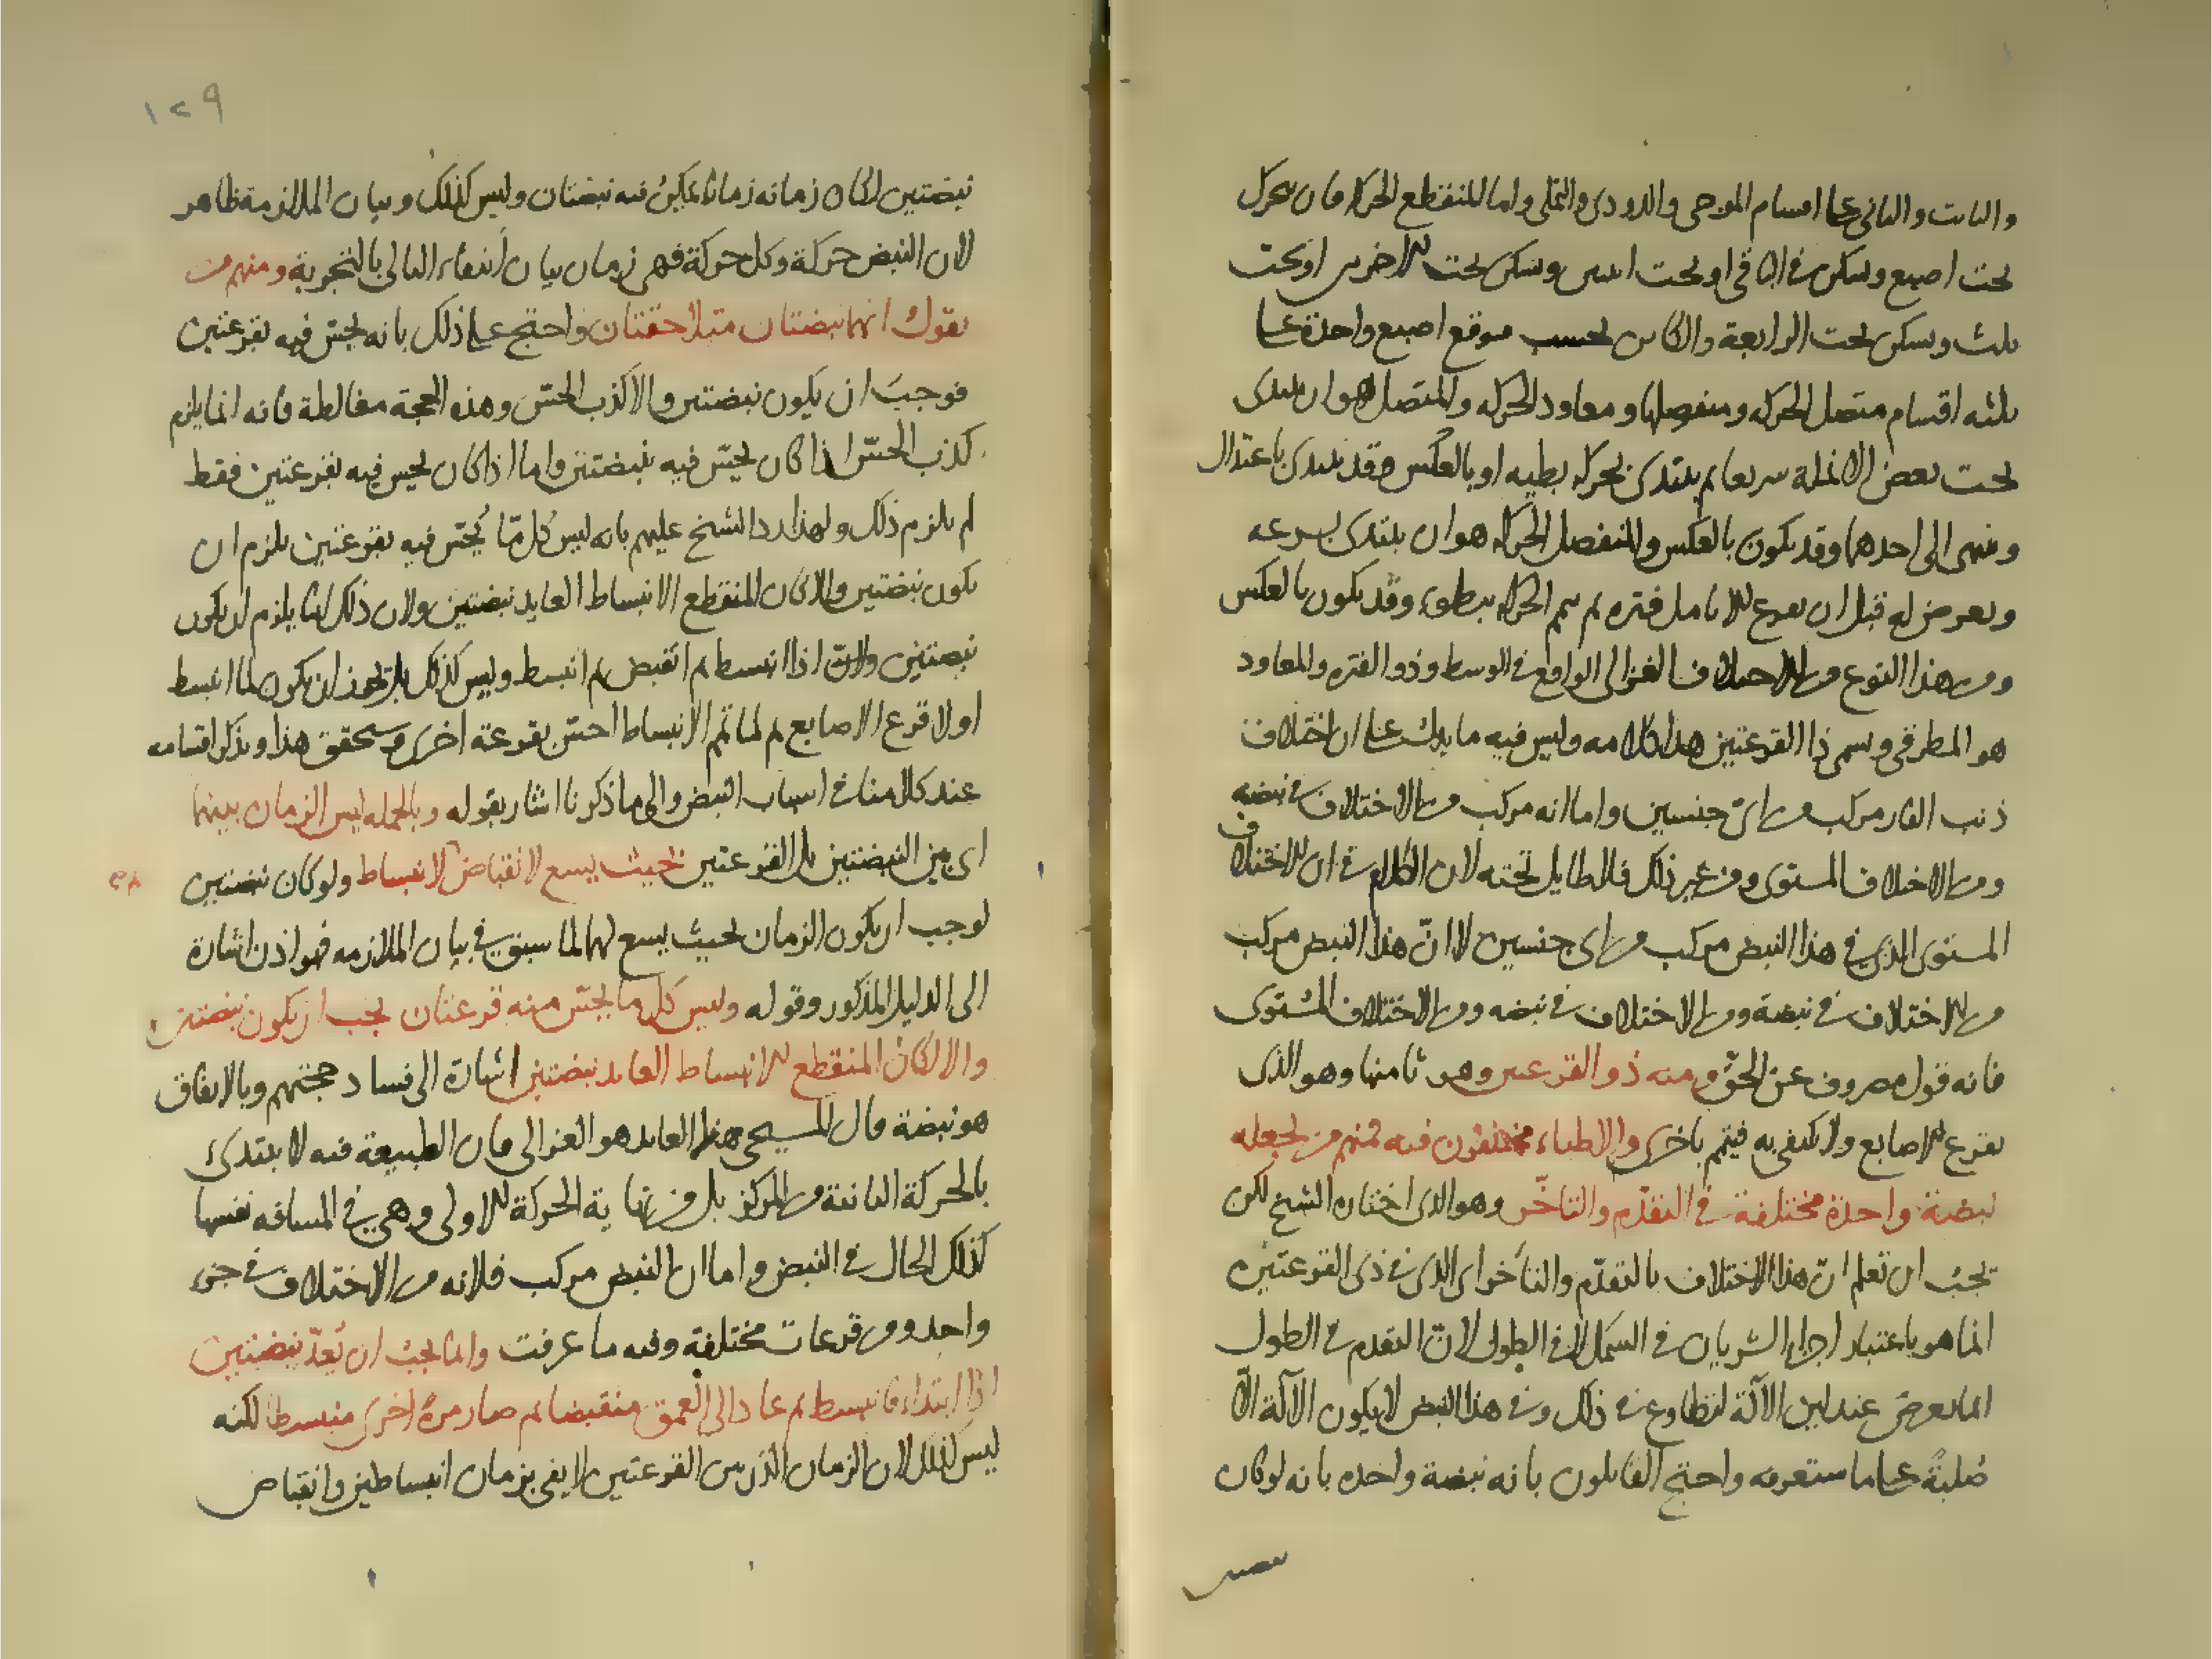 والثابت والثانى على اقسام الموجى والدودى والنملى واما المنقطع الحركة فان يتحرك
تحت اصبع ويسكن فى الباقى او تحت اثنين ويسكن تحت الاخريين او تحت
ثلث ويسكن تحت الرابعة والكاين بحسب موقع اصبع واحدة على
ثلثه اقسام متصل الحركه ومنفصلها ومعاود الحركه والمتصل هو ان يبتدى
تحت بعض الانملة سريعا ثم يبتدى بحركه بطيه او بالعكس وقد يبتدى باعتدال
وينتهى الى احدهما وقد يكون بالعكس والمنفصل الحركه هو ان يبتدى بسرعه
ويعرض له قبل ان يقرع الانامل فتره ثم يتم الحركه ببطوء وقد يكون بالعكس
ومن هذا النوع من الاختلاف الغزالى الواقع فى الوسط وذو الفتره والمعاود
هو المطرقى ويسمى ذا القرعتين هذا كلامه وليس فيه ما يدل على ان اختلاف
ذنب الفار مركب من اى جنسين واما انه مركب من الاختلاف فى نبضه
ومن الاختلاف المستوى ومن غير ذلك فلا طايل تحته لان الكلام فى ان الاختلاف
المستوى الذى فى هذا النبض مركب من اى جنسين لا ان هذا النبض مركب
من الاختلاف فى نبضة ومن الاختلاف فى نبضه ومن الاختلاف المستوى
فانه قول مصروف عن الحق ومنه ذو القرعتين وهو ثامنها وهو الذى
يقرع الاصابع ولا يكتفى به فيتم باخرى والاطباء مختلفون فيه فمنهم من يجعله
نبضة واحدة مختلفة فى التقدّم والتاخّر وهو الذى اختاره الشيخ لكن
يجب ان تعلم انّ هذا الاختلاف بالتقدّم والتأخر اى الذى فى ذى القرعتين
انما هو باعتبار اجزاء الشريان فى السمك لا فى الطول لانّ التقدم فى الطول
انما يعرض عند لين الآلة لتطاوع فى ذلك وفى هذا النبض لا يكون الآلة الّا
صُلبةً على ما ستعرفه واحتج القايلون بانه نبضة واحده بانه لو كان
نبضتين
نبضتين لكان زمانه زمانا يمكن فيه نبضتان وليس كذلك وبيان الملازمة ظاهر
لان النبض حركة وكل حركة فهى زمان بيان انتفاء التالى بالتجربة ومنهم من
يقول انها نبضتان متلاحقتان واحتج على ذلك بانه يحسّ فيه بقرعتين
فوجب ان يكون نبضتين والا كذب الحسّ وهذه الحجة مغالطة فانه انما يلزم
كذب الحسّ اذا كان يحسّ فيه بنبضتين واما اذا كان يحس فيه بقرعتين فقط
لم يلزم ذلك ولهذا رد الشيخ عليهم بانه ليس كل مّا يُحسّ فيه بقرعتين يلزم ان
يكون نبضتين والا لكان المنقطع الانبساط العايد نبضتين ولان ذلك انما يلزم ان يكون
نبضتين اذا انبسط ثم انقبض ثم انبسط وليس كذلك بل يجوز ان يكون لما انبسط
اولا قرع الاصابع ثم لما تمّ الانبساط احسّ بقرعة اخرى وسنحقق هذا ونذكر اقسامه
عند كلامنا فى اسباب النبض والى ما ذكرنا اشار بقوله وبالجمله ليس الزمان بينهما
اى بين النبضتين بل القرعتين بحيث يسع لانقباض ثم لانبساط ولو كان نبضتين
لوجب ان يكون الزمان بحيث يسع لهما لما سبق فى بيان الملازمه فهو اذن اشارة
الى الدليل المذكور وقوله وليس كل ما يحسّ منه قرعتان يجب ان يكون نبضتين
والا لكان المنقطع الانبساط العايد نبضتين اشارة الى فساد حجتهم وبالاتفاق
هو نبضة قال المسيحى هذا العايد هو الغزالى فان الطبيعة فيه لا يبتدى
بالحركة الثانية من المركز بل من نهاية الحركة الاولى وهى فى المسافه نفسها
كذلك الحال فى النبض واما ان النبض مركب فلانه من الاختلاف فى جزء
واحد ومن قرعات مختلفة وفيه ما عرفت وانما يجب ان تُعدّ نبضتين
اذا ابتداء فانبسط ثم عاد الى العمق منقبضا ثم صار مرة اخرى منبسطا لكنه
ليس كذلك لان الزمان الذى بين القرعتين لا يفى بزمان انبساطين وانقباض